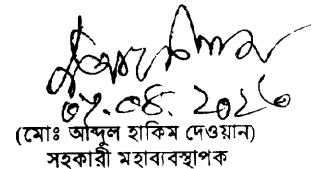 ০৭.০৪.২০২০
(মোঃ আব্দুল হাকিম দেওয়ান)
সহকারী মহাব্যবস্থাপক